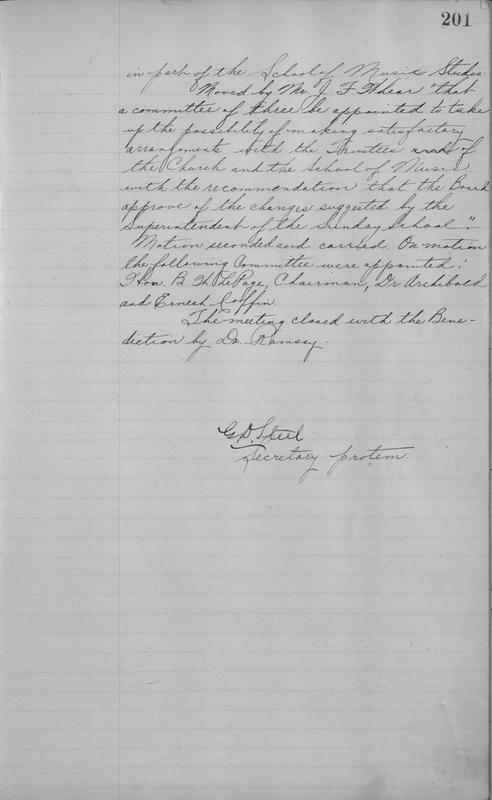 201
in part of the School of Music Studio.
Moved by Mr. J. F. Whear "that
a committee of three be appointed to take
up the possibility of making satisfactory
arrangements with the Trustees of
the Church and the School of Music
with the recommendation that the Board
approve of the changes suggested by the
Superintendent of the Sunday School".
Motion seconded and carried. On motion
the following Committee were appointed:
Hon. B. W. LePage, Chairman, Dr Archibald
and Ernest Coffin
The meeting closed with the Bene-
diction by Dr. Ramsay.
G. D. Steel
Secretary protem.